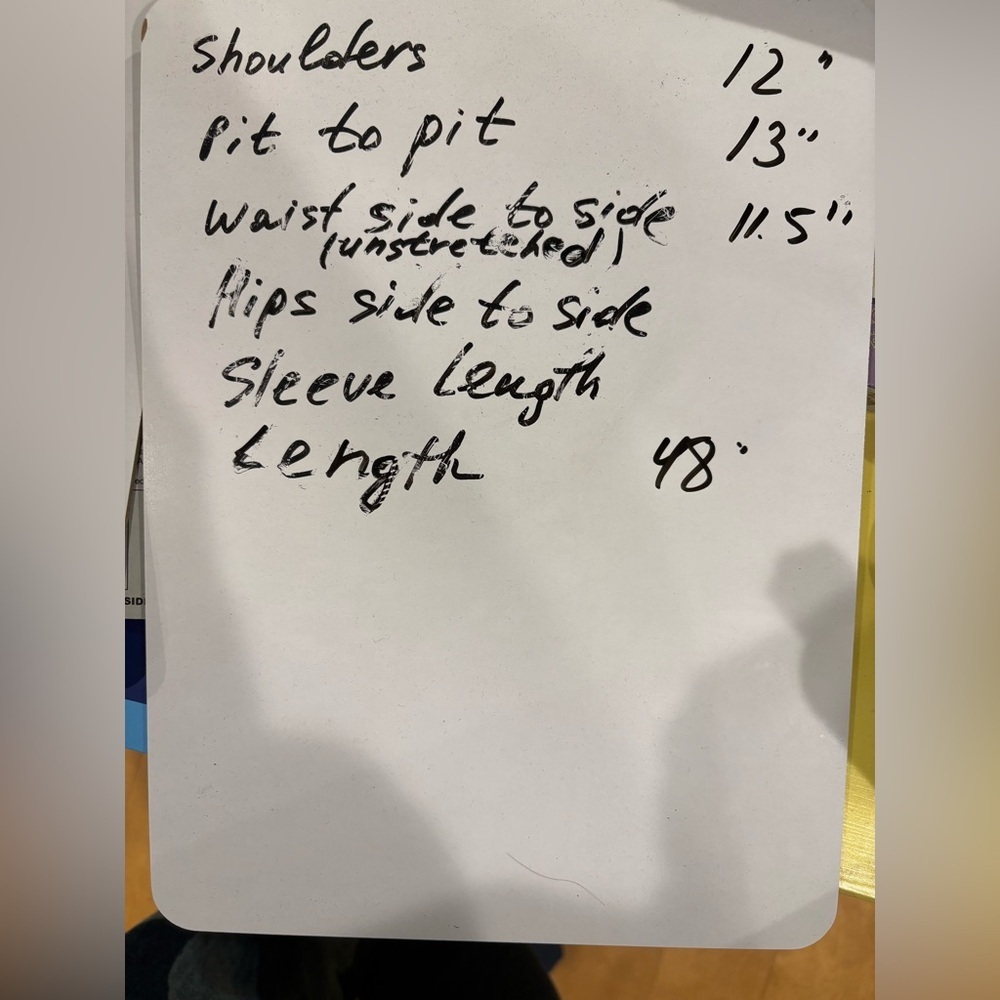 Shoulders 12"
Pit to pit 13"
Waist side to side 11.5"
(unstretched)
Hips side to side
Sleeve Length
Length 48"
SID